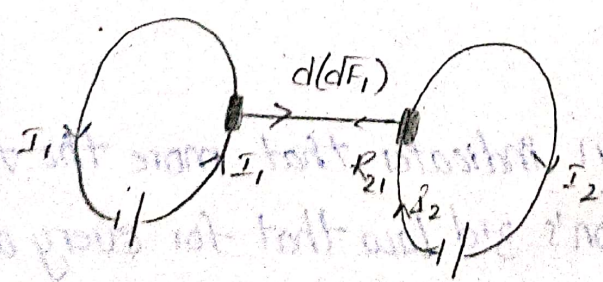 d(dF₁)
I₁
I₁
R₂₁
I₂
I₂